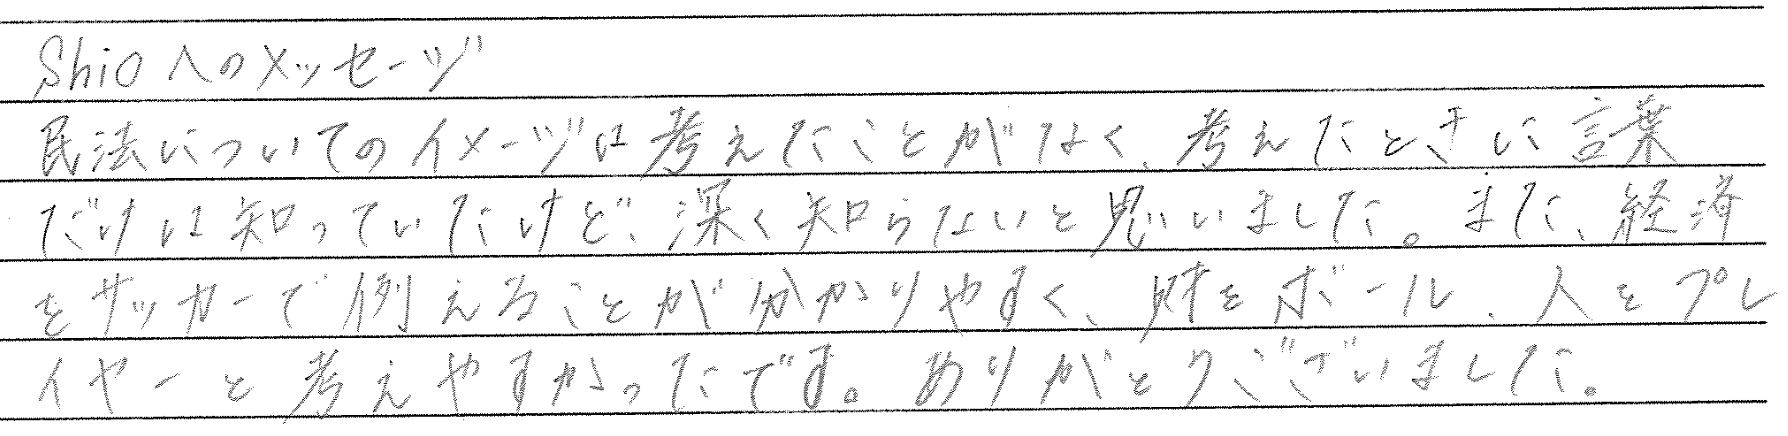 Shioへのメッセージ
民法についてのイメージは考えたことがなく、考えたときに言葉
だけは知っていたけど、深く知らないと思いました。また、経済
をサッカーで例えることが分かりやすく、財をボール、人をプレ
イヤーと考えやすかったです。ありがとうございました。